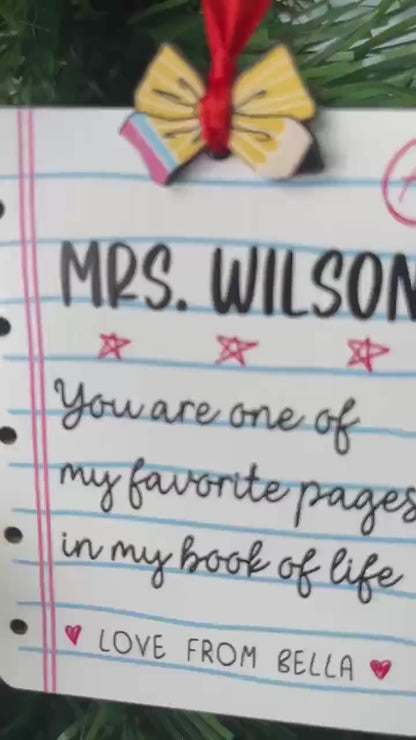 MRS. WILSON
You are one of
my favorite pages
in my book of life
LOVE FROM BELLA